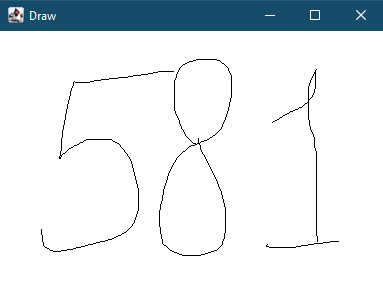 Draw
581